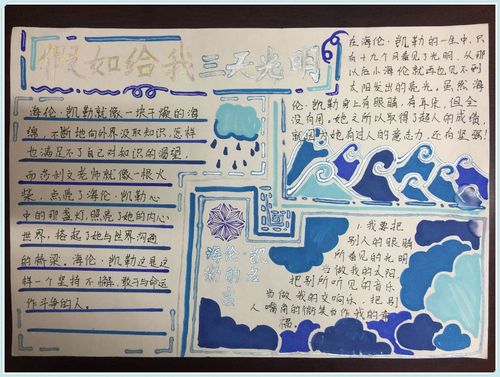 假如给我三天光明
海伦·凯勒就像一块干燥的海
绵，不断地向外汲取知识，怎样
也满足不了自己对知识的渴望。
而莎利文老师就像一根火
柴，点亮了海伦·凯勒心
中的那盏灯，照亮了她的内心
世界，搭起了她与世界沟通
的桥梁。海伦·凯勒这是这
样一个坚持不懈，敢于与命运
作斗争的人。
在海伦·凯勒的一生中，只
有十九个月看见了光明，从那
以后小海伦就再也见不到
太阳发出的亮光。虽然海
伦·凯勒身上有眼睛，有耳朵，但全
没有用。她之所以取得了超人的成绩，
就是因为她有过人的意志力，还有坚强！
海伦·凯
勒的名
言
1.我要把
别人的眼睛
所看见的光明
当做我的太阳，
把别人所听见的音乐
当做我的交响乐，把别
人嘴角的微笑当作我的幸
福。